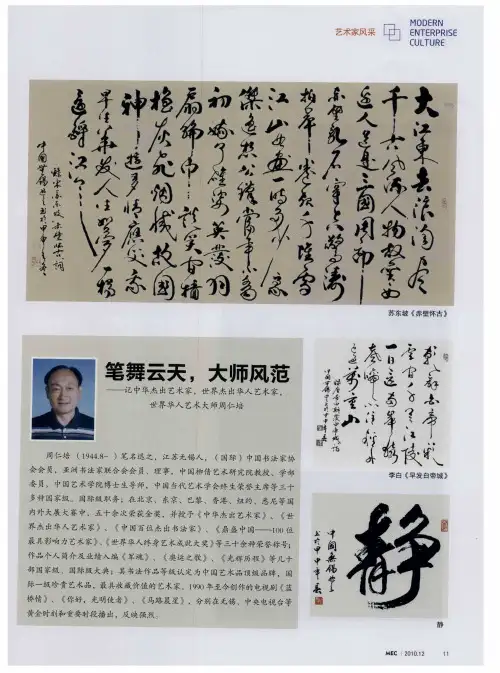 艺术家风采
MODERN
ENTERPRISE
CULTURE
大江東去浪淘尽
千古風流人物故壘西
边人道是三國周郎
赤壁乱石穿空惊涛
拍岸卷起千堆雪
江山如画一時多少豪
傑遥想公瑾當年小喬
初嫁了雄姿英發羽
扇綸巾談笑间檣
櫓灰飛烟滅故國
神遊多情應笑我
早生華发人生如夢一樽
還酹江月
苏东坡《赤壁怀古》
笔舞云天，大师风范
——记中华杰出艺术家，世界杰出华人艺术家，
世界华人艺术大师周仁培
周仁培（1944.8-）笔名愚之，江苏无锡人，（国际）中国书法家协
会会员、亚洲书法家联合会会员、理事，中国柳倩艺术研究院教授、学部
委员，中国艺术学院博士生导师，中国当代艺术学会终生荣誉主席等三十
多种国家级、国际级职务；在北京、东京、巴黎、香港、纽约、悉尼等国
内外大展大赛中，五十余次荣获金奖，并授予《中华杰出艺术家》、《世
界杰出华人艺术家》、《中国百位杰出书法家》、《鼎盛中国——100位
最具影响力艺术家》、《世界华人终身艺术成就大奖》等三十余种荣誉称号；
作品个人简介及业绩入编《军魂》、《奥运之歌》、《光辉历程》等几十
部国家级、国际级大典；其书法作品等级认定为中国艺术品顶级品牌，国
际一级珍贵艺术品，最具收藏价值的艺术家，1990年至今创作的电视剧《蓝
桥情》、《你好，光明使者》、《马路晨星》，分别在无锡、中央电视台等
黄金时刻和重要时段播出，反映强烈。
朝辞白帝彩
雲間千里江陵
一日还两岸猿
声啼不住轻舟
已过萬重山
李白《早发白帝城》
静
静
MEC | 2010.12 11